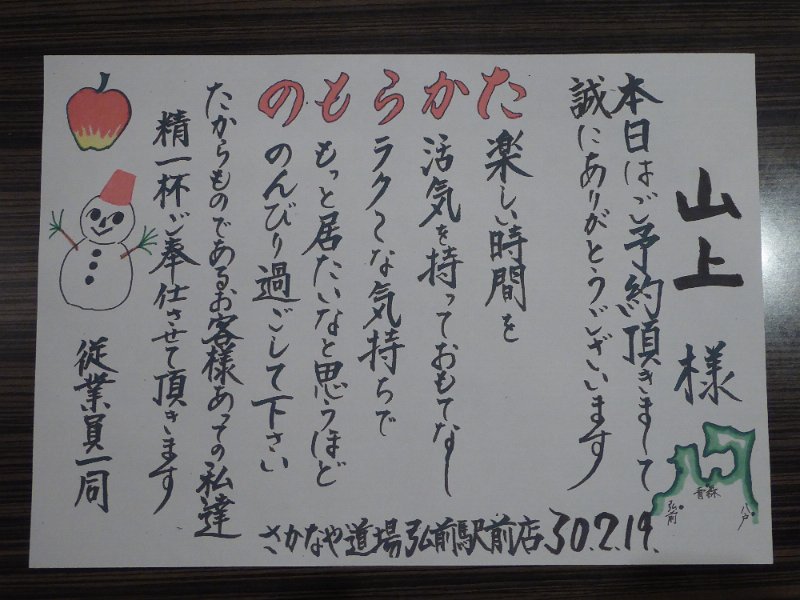 山上 様
本日はご予約頂きまして
誠にありがとうございます
た 楽しい時間を
か 活気を持っておもてなし
ら ラクな気持ちで
も もっと居たいなと思うほど
の のんびり過ごして下さい
たからものであるお客様あっての私達
精一杯ご奉仕させて頂きます
従業員一同
さかなや道場弘前駅前店 30.2.19.
青森
弘前
八戸